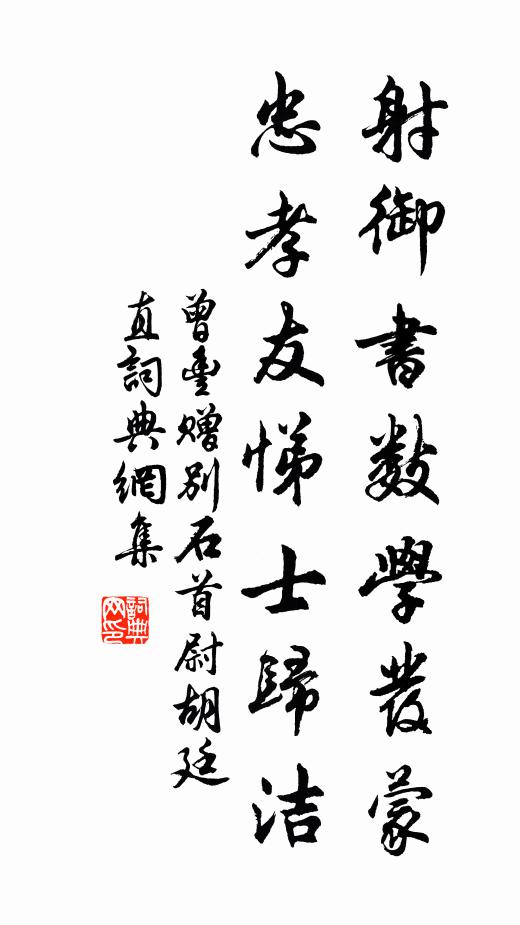 射御書數學發蒙
忠孝友悌士歸洁
曾豊赠别石首尉胡廷
直詞典網集
詞典网印